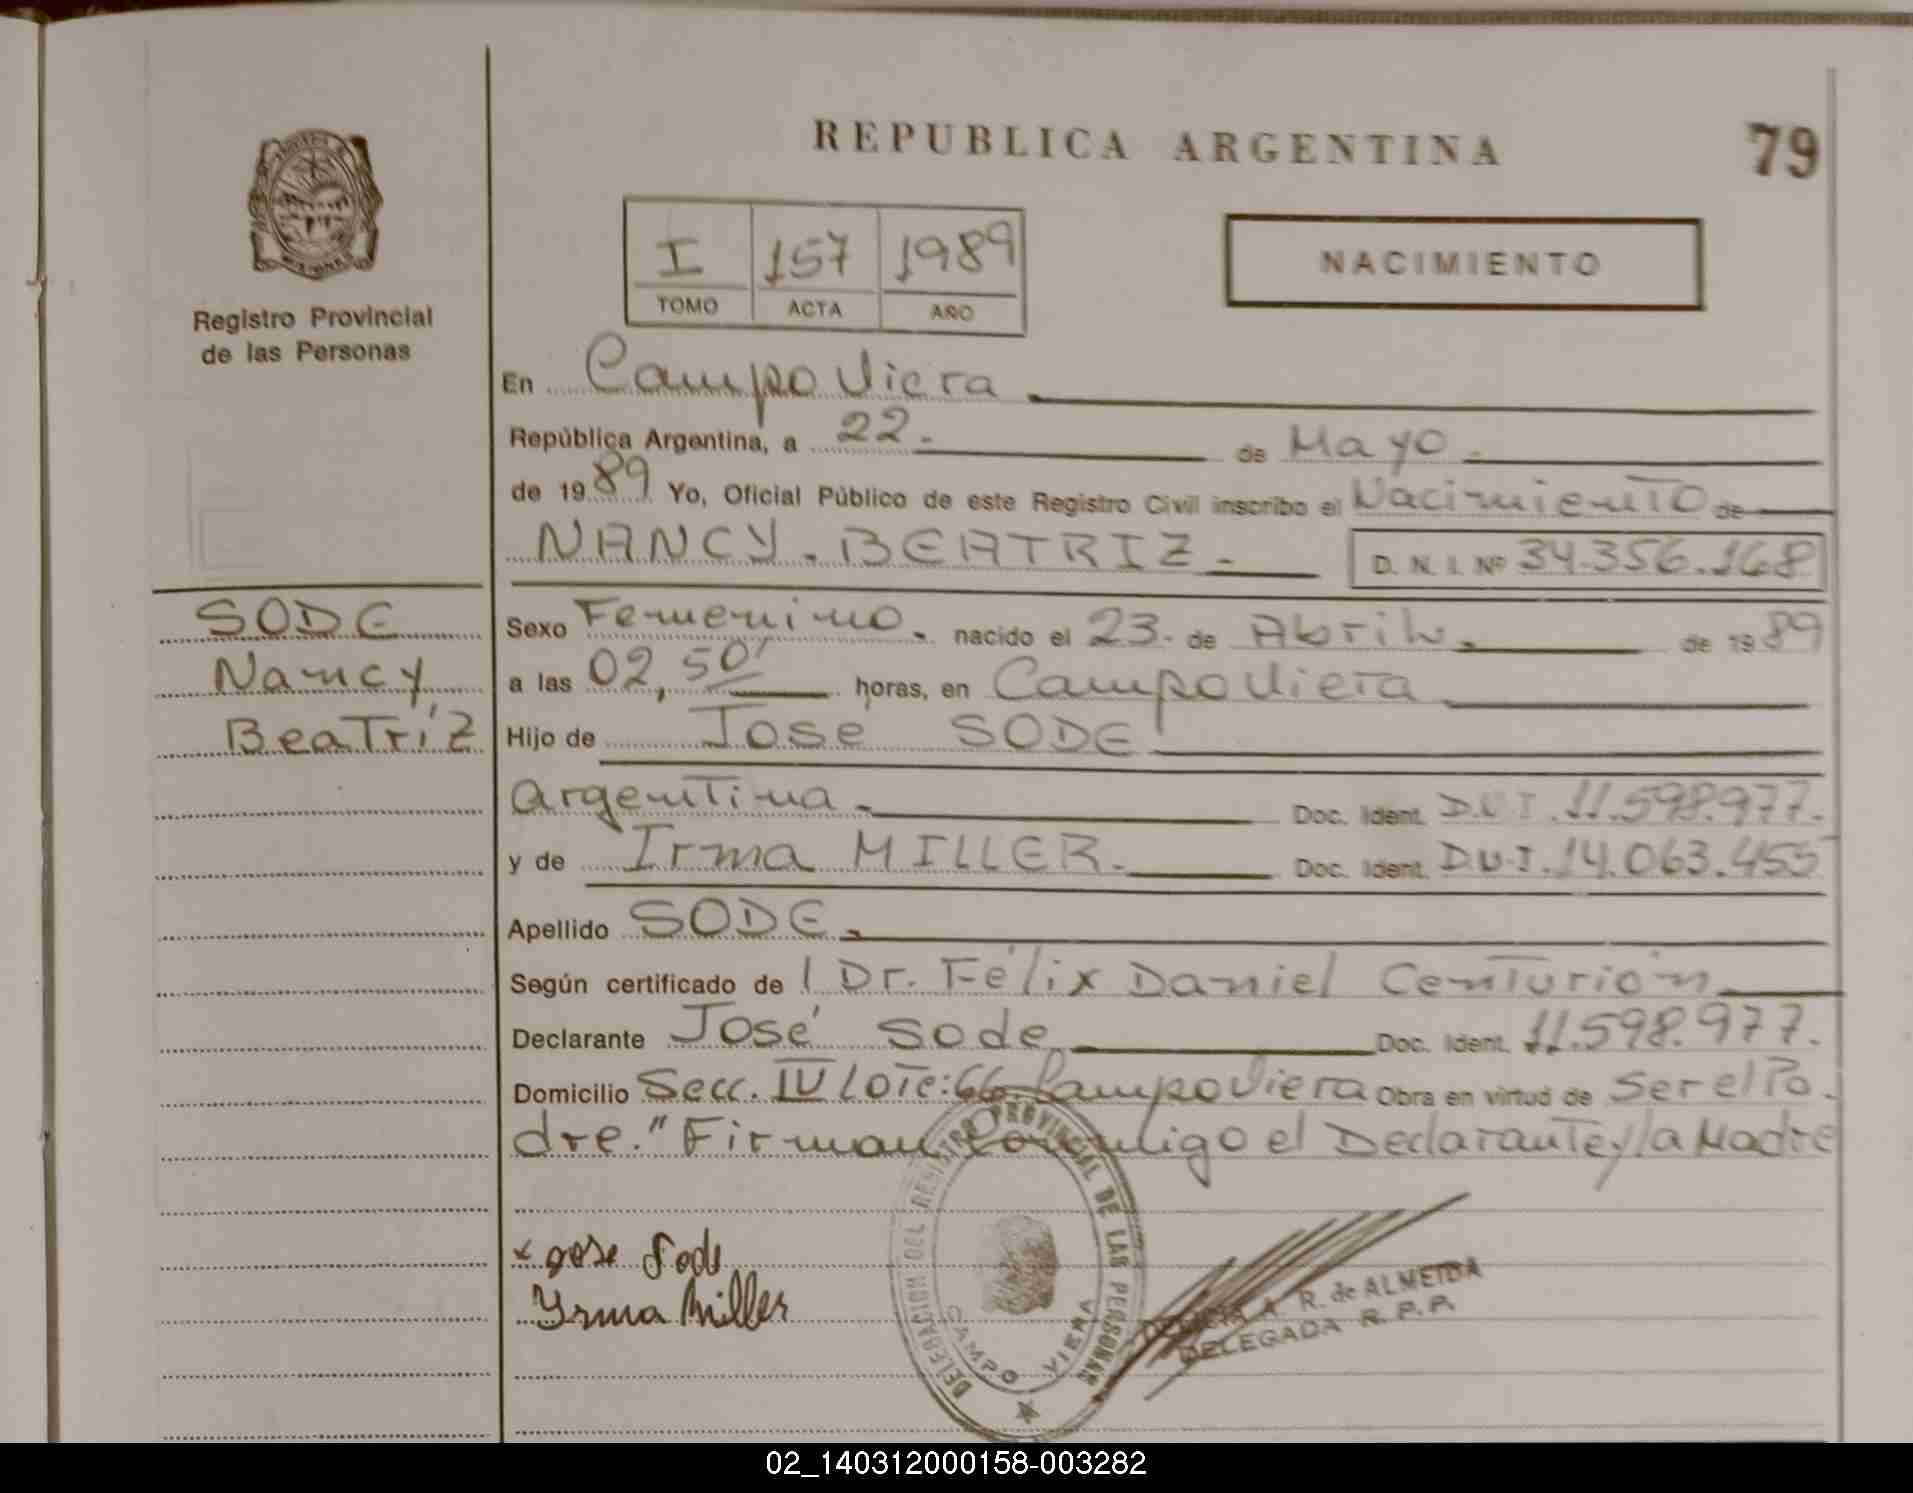 REPUBLICA ARGENTINA
79
MISIONES
Registro Provincial
de las Personas
I 157 1989
TOMO ACTA AÑO
NACIMIENTO
En Campo Viera
República Argentina, a 22. de Mayo.
de 1989 Yo, Oficial Público de este Registro Civil inscribo el Nacimiento de
NANCY. BEATRIZ. D. N. I. Nº 34.356.168
SODE
Nancy
Beatríz
Sexo Femenino. nacido el 23. de Abril. de 1989
a las 02,50' horas, en Campo Viera
Hijo de Jose SODE
argentina. Doc. Ident. D.N.I. 11.598.977.
y de Irma MILLER. Doc. Ident. D.N.I. 14.063.455
Apellido SODE.
Según certificado de l Dr. Félix Daniel Centurión
Declarante José Sode Doc. Ident. 11.598.977.
Domicilio Secc. IV Lote: 66 Campo Viera Obra en virtud de Ser el Pa.
dre." Firman conmigo el Declarante y la Madre
x Jose Sode
Yrma Miller
DELEGACION DEL REGISTRO PROVINCIAL DE LAS PERSONAS
CAMPO VIERA
A. R. de ALMEIDA
DELEGADA R. P. P.
02_140312000158-003282